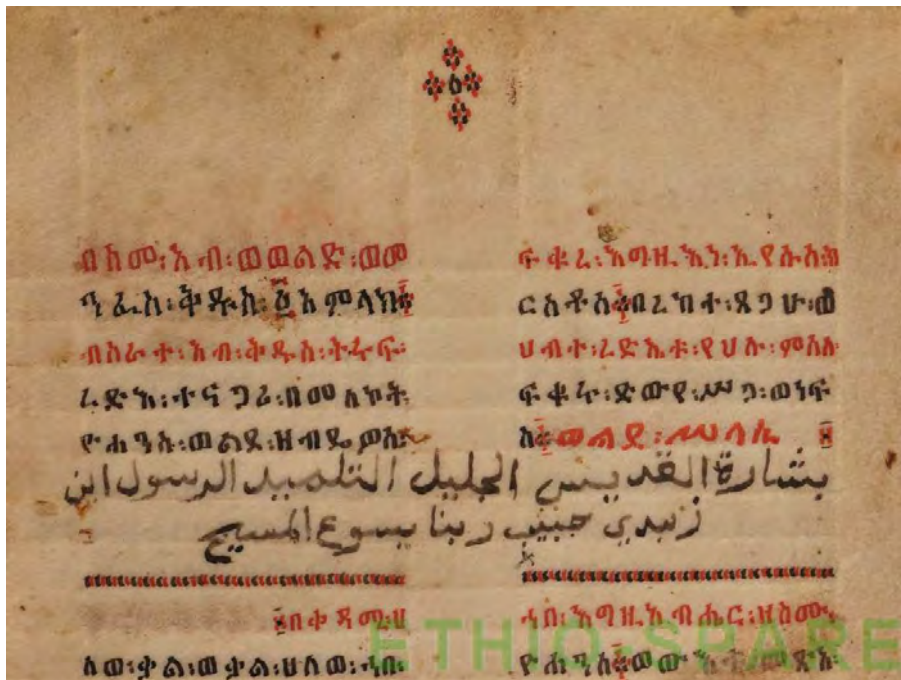 በስመ፡አብ፡ወወልድ፡ወመ
ንፈስ፡ቅዱስ፡፩አምላክ፨
ብስራተ፡አብ፡ቅዱስ፡ትሩፍ፡
ረድእ፡ተናጋሪ፡በመለኮት፡
ዮሐንስ፡ወልደ፡ዘብዴዎስ፡
ፍቁረ፡እግዚእነ፡ኢየሱስክ
ርስቶስ፨በረከተ፡ጸጋሁ፡ወ
ሀብተ፡ረድኤቱ፡የሀሉ፡ምስለ
ፍቁሩ፡ድውየ፡ሥጋ፡ወነፍ
ስ፨ወልደ፡ሥላሴ
بشارة القديس الجليل التلميد الرسول ابن
زبدي حبيب ربنا يسوع المسيح
በቀዳሚ፡ሀ
ለወ፡ቃል፡ወቃል፡ሀለወ፡ኀበ፡
ኀበ፡እግዚአብሔር፡ዘስሙ፡
ዮሐንስ፨ወውእቱ፡መጽአ፡
ETHIO SPARE